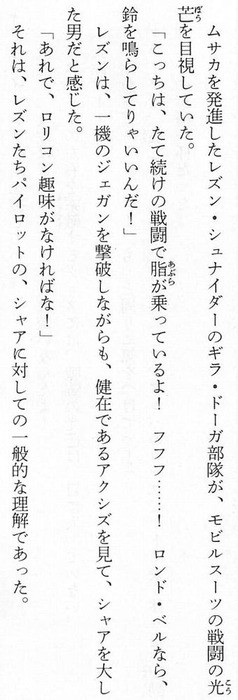 ムサカを発進したレズン・シュナイダーのギラ・ドーガ部隊が、モビルスーツの戦闘の光
芒を目視していた。
「こっちは、たて続けの戦闘で脂が乗っているよ！　フフフ……！　ロンド・ベルなら、
鈴を鳴らしてりゃいいんだ！」
レズンは、一機のジェガンを撃破しながらも、健在であるアクシズを見て、シャアを大し
た男だと感じた。
「あれで、ロリコン趣味がなければな！」
それは、レズンたちパイロットの、シャアに対しての一般的な理解であった。